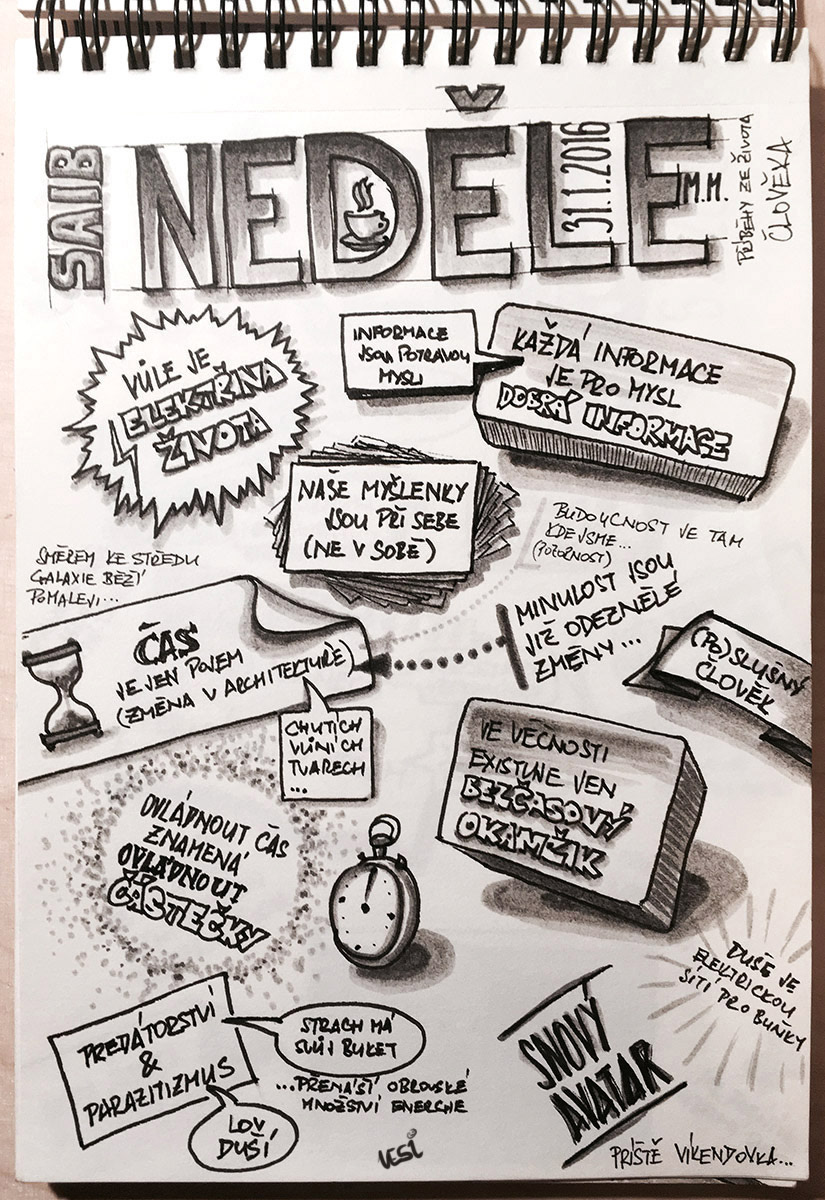 SAIB
NEDĚLE
31.1.2016
M.M.
PŘÍBĚHY ZE ŽIVOTA
ČLOVĚKA
VŮLE JE
ELEKTŘINA
ŽIVOTA
INFORMACE
JSOU POTRAVOU
MYSLI
KAŽDÁ INFORMACE
JE PRO MYSL
DOBRÁ INFORMACE
NAŠE MYŠLENKY
JSOU PŘI SEBE
(NE V SOBĚ)
BUDOUCNOST JE TAM
KDE JSME...
(POZORNOST)
SMĚREM KE STŘEDU
GALAXIE BĚŽÍ
POMALEJI...
ČAS
JE JEN POJEM
(ZMĚNA V ARCHITECTUŘE)
MINULOST JSOU
JIŽ ODEZNĚLÉ
ZMĚNY...
(PO)SLUŠNÝ
ČLOVĚK
CHUTÍCH
VŮNÍCH
TVARECH
...
VE VĚČNOSTI
EXISTUJE JEN
BEZČASOVÝ
OKAMŽIK
OVLÁDNOUT ČAS
ZNAMENÁ
OVLÁDNOUT
ČÁSTEČKY
DUŠE JE
ELEKTRICKOU
SÍTÍ PRO BUŇKY
PREDÁTORSTVÍ
&
PARAZITIZMUS
STRACH MÁ
SVŮJ BUKET
...PŘENÁŠÍ OBROVSKÉ
MNOŽSTVÍ ENERGIE
LOV
DUŠÍ
SNOVÝ
AVATAR
VESI
PŘÍŠTĚ VÍKENDOVKA...